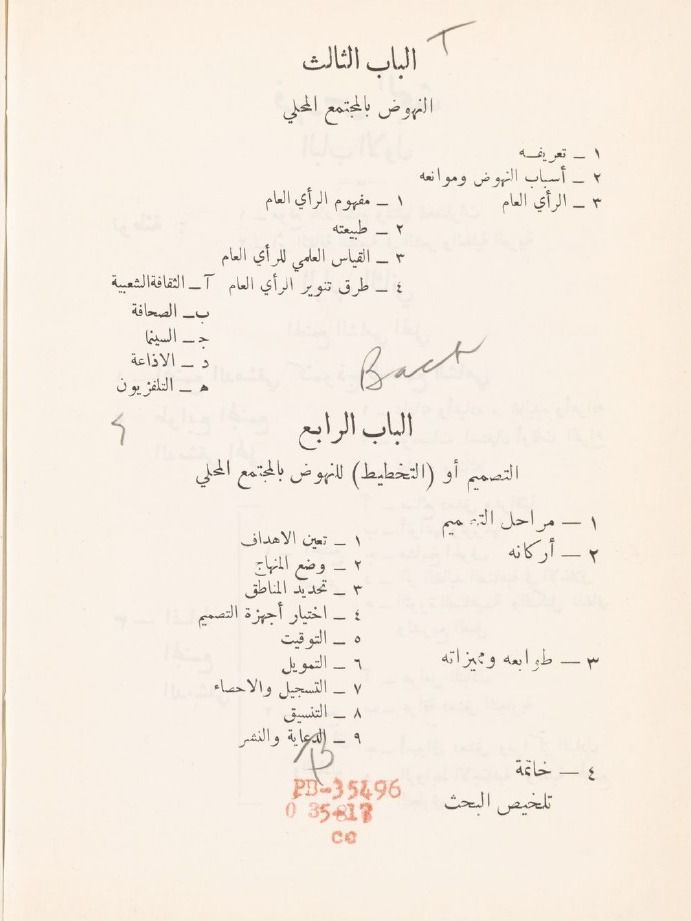 الباب الثالث
النهوض بالمجتمع المحلي
١ ـ تعريفه
٢ ـ أسباب النهوض وموانعه
٣ ـ الرأي العام ١ ـ مفهوم الرأي العام
٢ ـ طبيعته
٣ ـ القياس العلمي للرأي العام
٤ ـ طرق تنوير الرأي العام آ ـ الثقافة الشعبية
ب ـ الصحافة
جـ ـ السينما
د ـ الاذاعة
هـ ـ التلفزيون
Bact
الباب الرابع
التصميم أو (التخطيط) للنهوض بالمجتمع المحلي
١ ـ مراحل التصميم
٢ ـ أركانه ١ ـ تعين الاهداف
٢ ـ وضع المنهاج
٣ ـ تحديد المناطق
٤ ـ اختيار أجهزة التصميم
٥ ـ التوقيت
٦ ـ التمويل
٧ ـ التسجيل والاحصاء
٨ ـ التنسيق
٩ ـ الدعاية والنشر
٣ ـ طوابعه ومميزاته
٤ ـ خاتمة
تلخيص البحث
PB-35496
cc